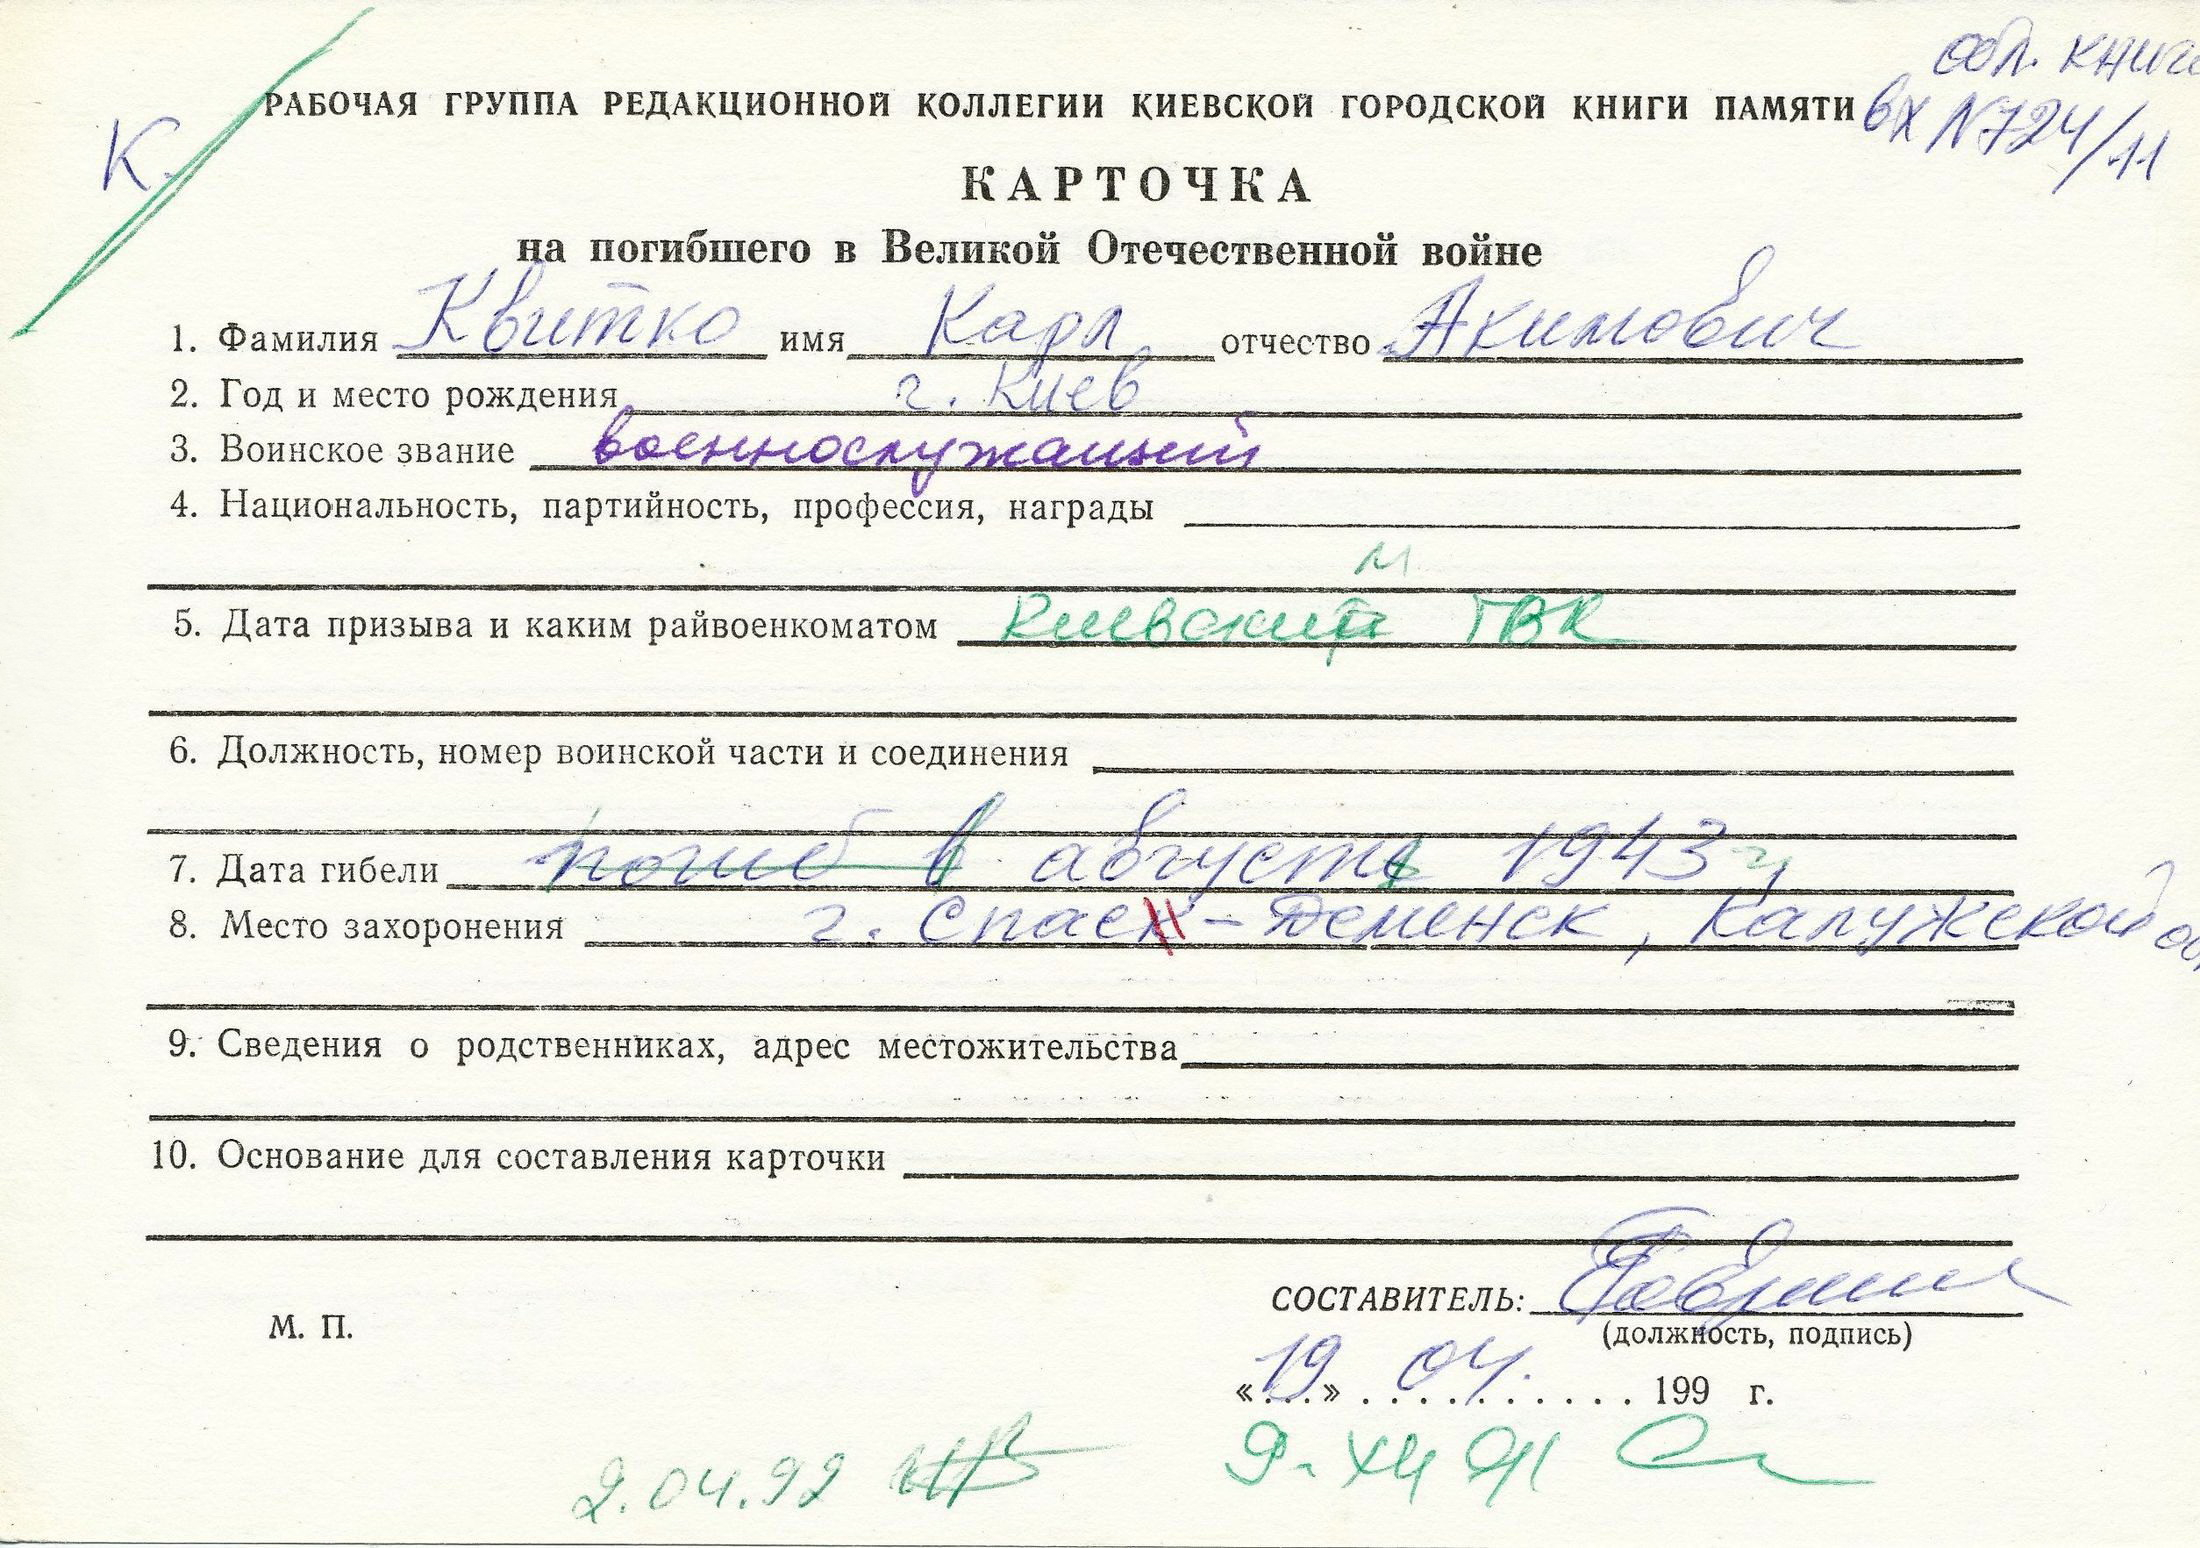 обл. книга
РАБОЧАЯ ГРУППА РЕДАКЦИОННОЙ КОЛЛЕГИИ КИЕВСКОЙ ГОРОДСКОЙ КНИГИ ПАМЯТИ вх N724/11
К.
КАРТОЧКА
на погибшего в Великой Отечественной войне
1. Фамилия Квитко имя Карл отчество Акимович
2. Год и место рождения г. Киев
3. Воинское звание военнослужащий
4. Национальность, партийность, профессия, награды
м
5. Дата призыва и каким райвоенкоматом Киевский ГВК
6. Должность, номер воинской части и соединения
7. Дата гибели погиб в августе 1943 г
8. Место захоронения г. Спаск-Деменск, Калужской об
9. Сведения о родственниках, адрес местожительства
10. Основание для составления карточки
СОСТАВИТЕЛЬ:
М. П.
(должность, подпись)
«19» 04. 199 г.
2.04.92